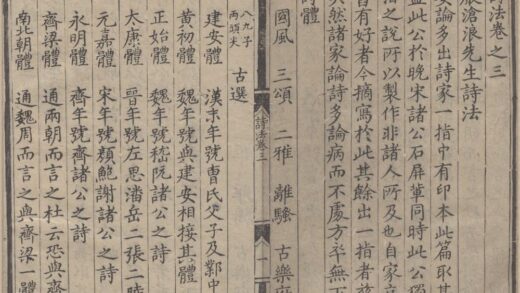 法卷之三
滄浪先生詩法
安論多出詩家一指中有印本此篇取其
此公於晚宋諸公石屏輩同時此公獨
之說所以製作非諸人所及也自家立
皆有好者今摘寫於此其餘出一指者
然諸家論詩多論病而不處方卒無下
體
國風 三頌 二雅 離騷 古樂府
詩法卷三 一
八九子
兩頭夫 古選
建安體 漢末年號曹氏父子及鄴中
黃初體 魏年號與建安相接其體
正始體 魏年號嵇阮諸公之詩
太康體 晉年號左思潘岳二張二時
元嘉體 宋年號顏鮑謝諸公之詩
永明體 齊年號齊諸公之詩
齊梁體 通兩朝而言之杜云恐與齊
南北朝體 通魏周而言之與齊梁一體